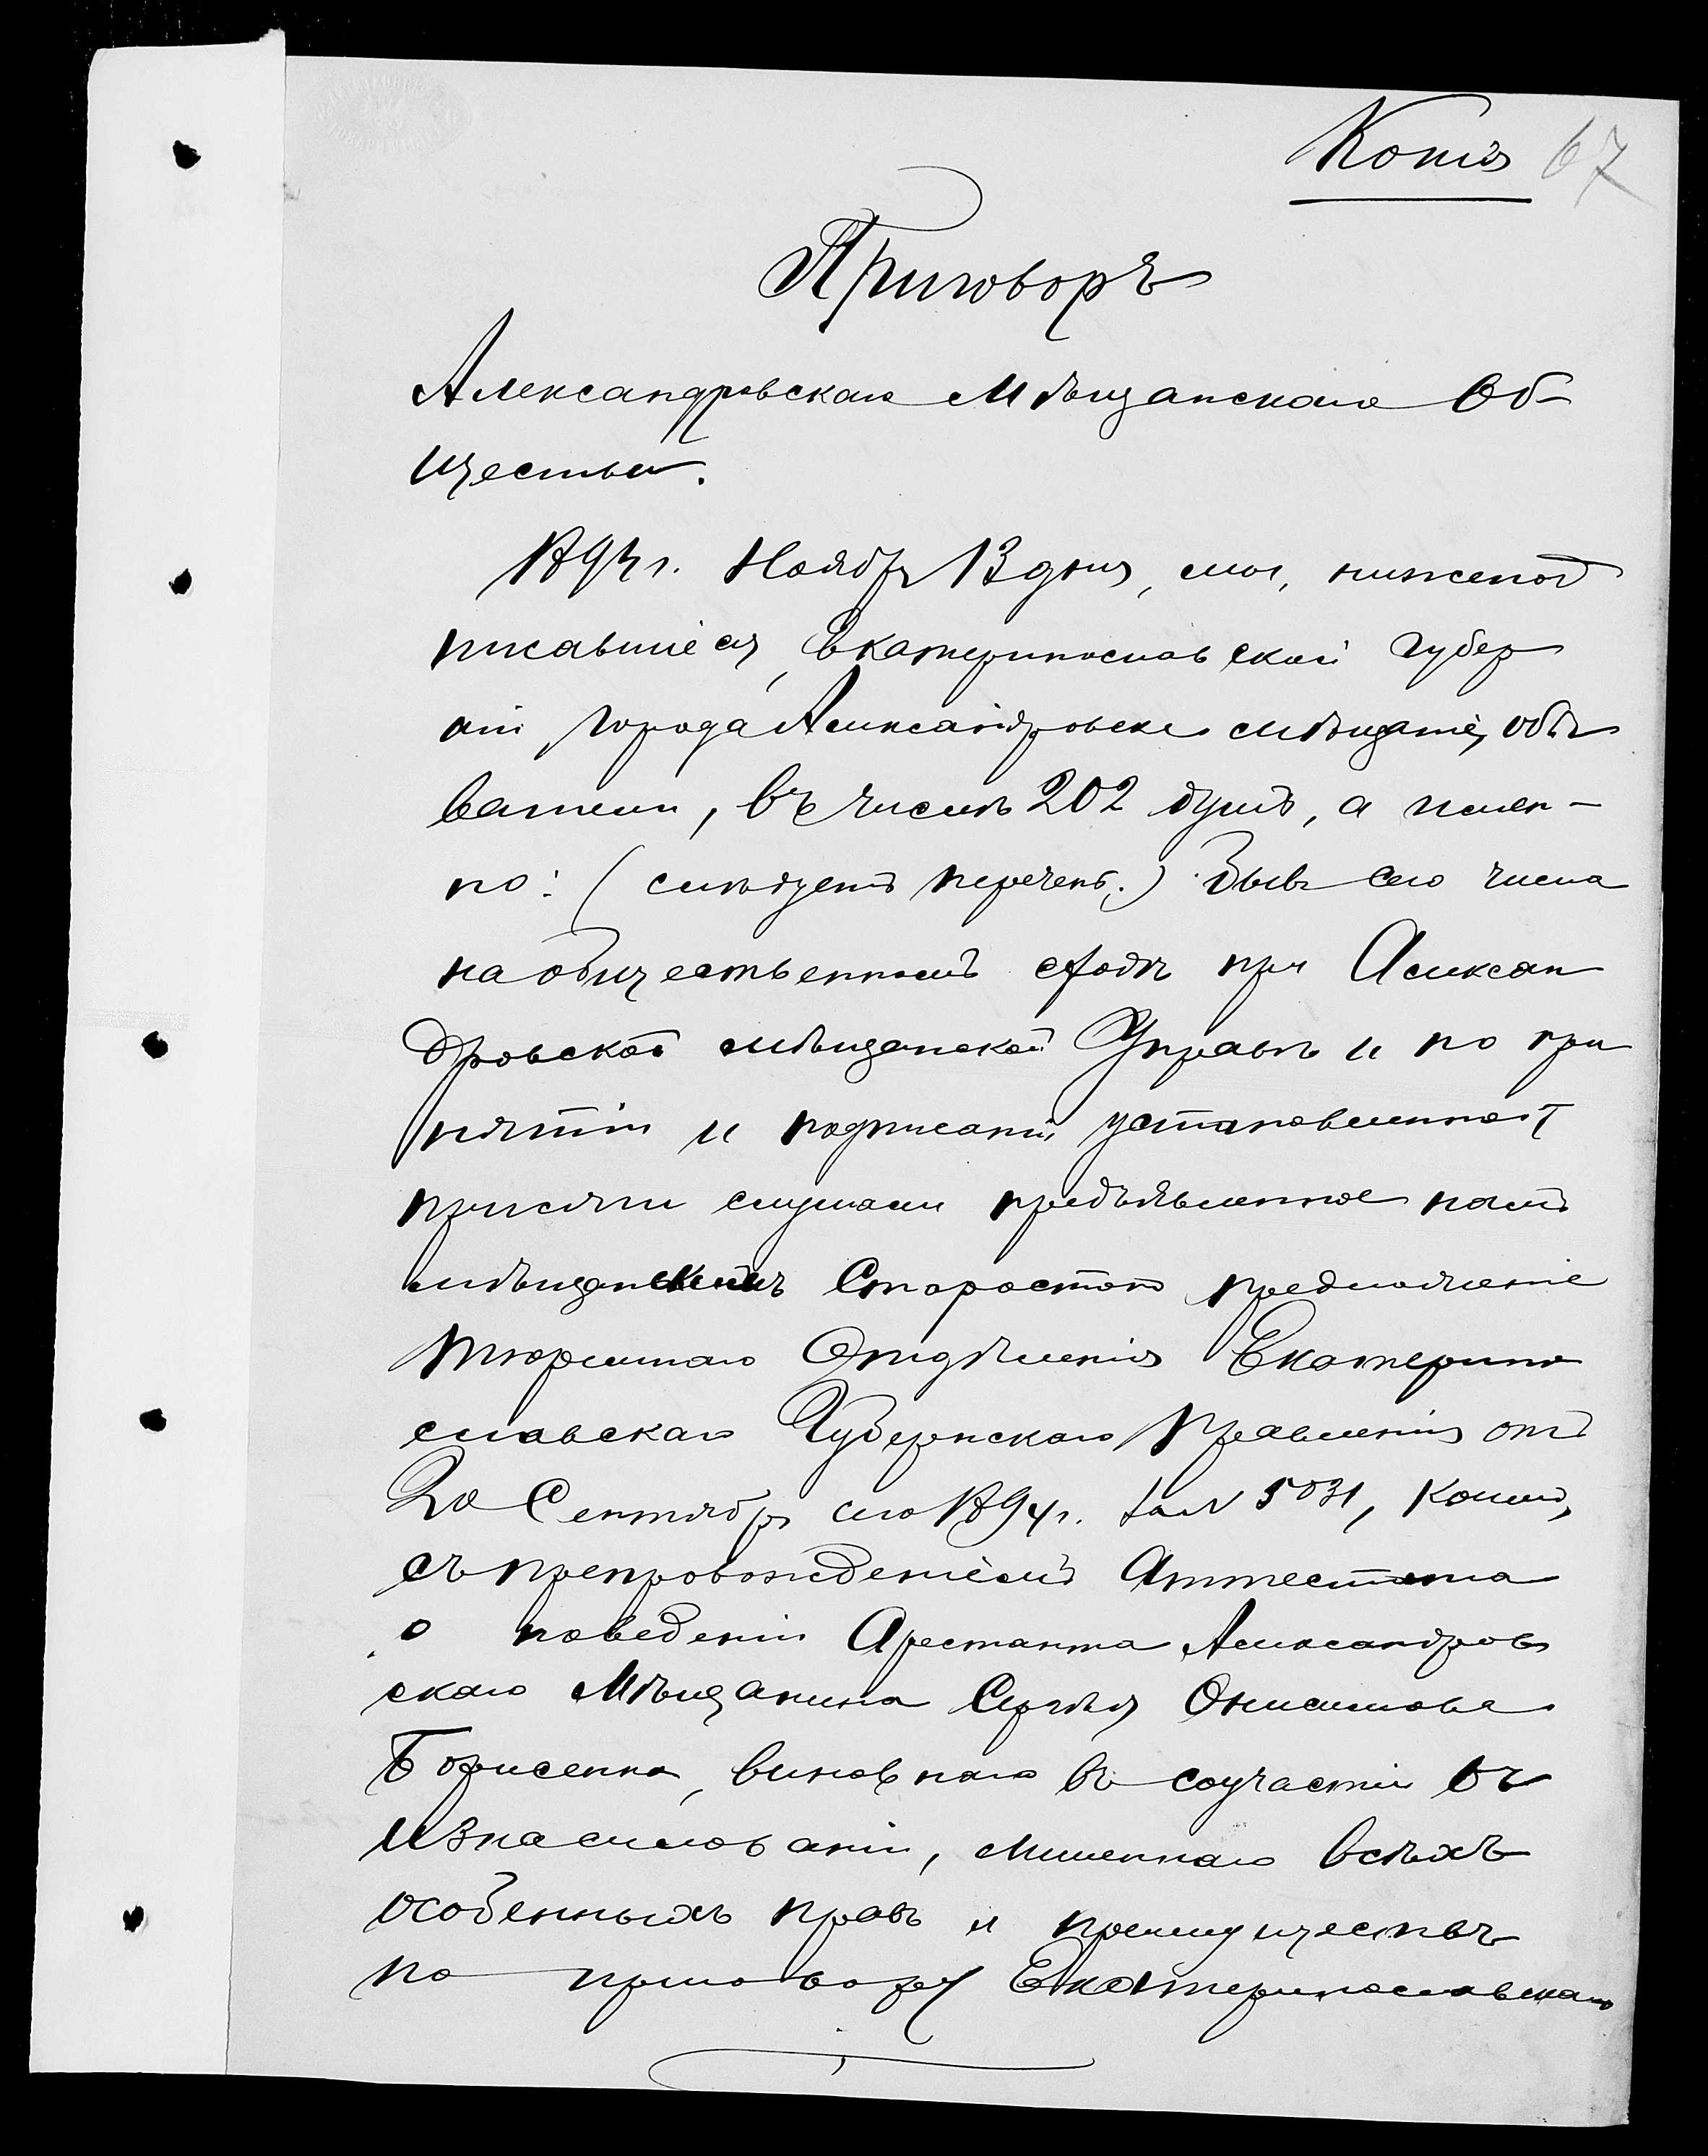 Копія 67
Приговоръ
Александровскаго Мѣщанскаго Об-
щества.
1894 г. Ноября 13 дня, мы, нижепод
писавшіеся, Екатеринославской губер
ніи города Александровска мѣщане, обы
ватели, въ числѣ 202 душъ, а имен-
но: (слѣдуетъ перечень.) Бывъ сего числа
на общественномъ сходѣ при Алексан
дровской мѣщанской Управѣ и по при
нятіи и подписаніи установленной
присяги слушали предъявленное намъ
мѣщанскимъ Старостою предложеніе
тюремнаго Отдѣленія Екатерино
славскаго Губернскаго Правленія отъ
20 Сентября сего 1894 г. за № 5031, коимъ,
съ препровожденіемъ Аттестата
о поведеніи Арестанта Александров
скаго Мѣщанина Сергѣя Онисимова
Борисенко, виновнаго въ соучастіи въ
изнасилованіи, лишеннаго всѣхъ
особенныхъ правъ и преимуществъ
по приговору Екатеринославскаго